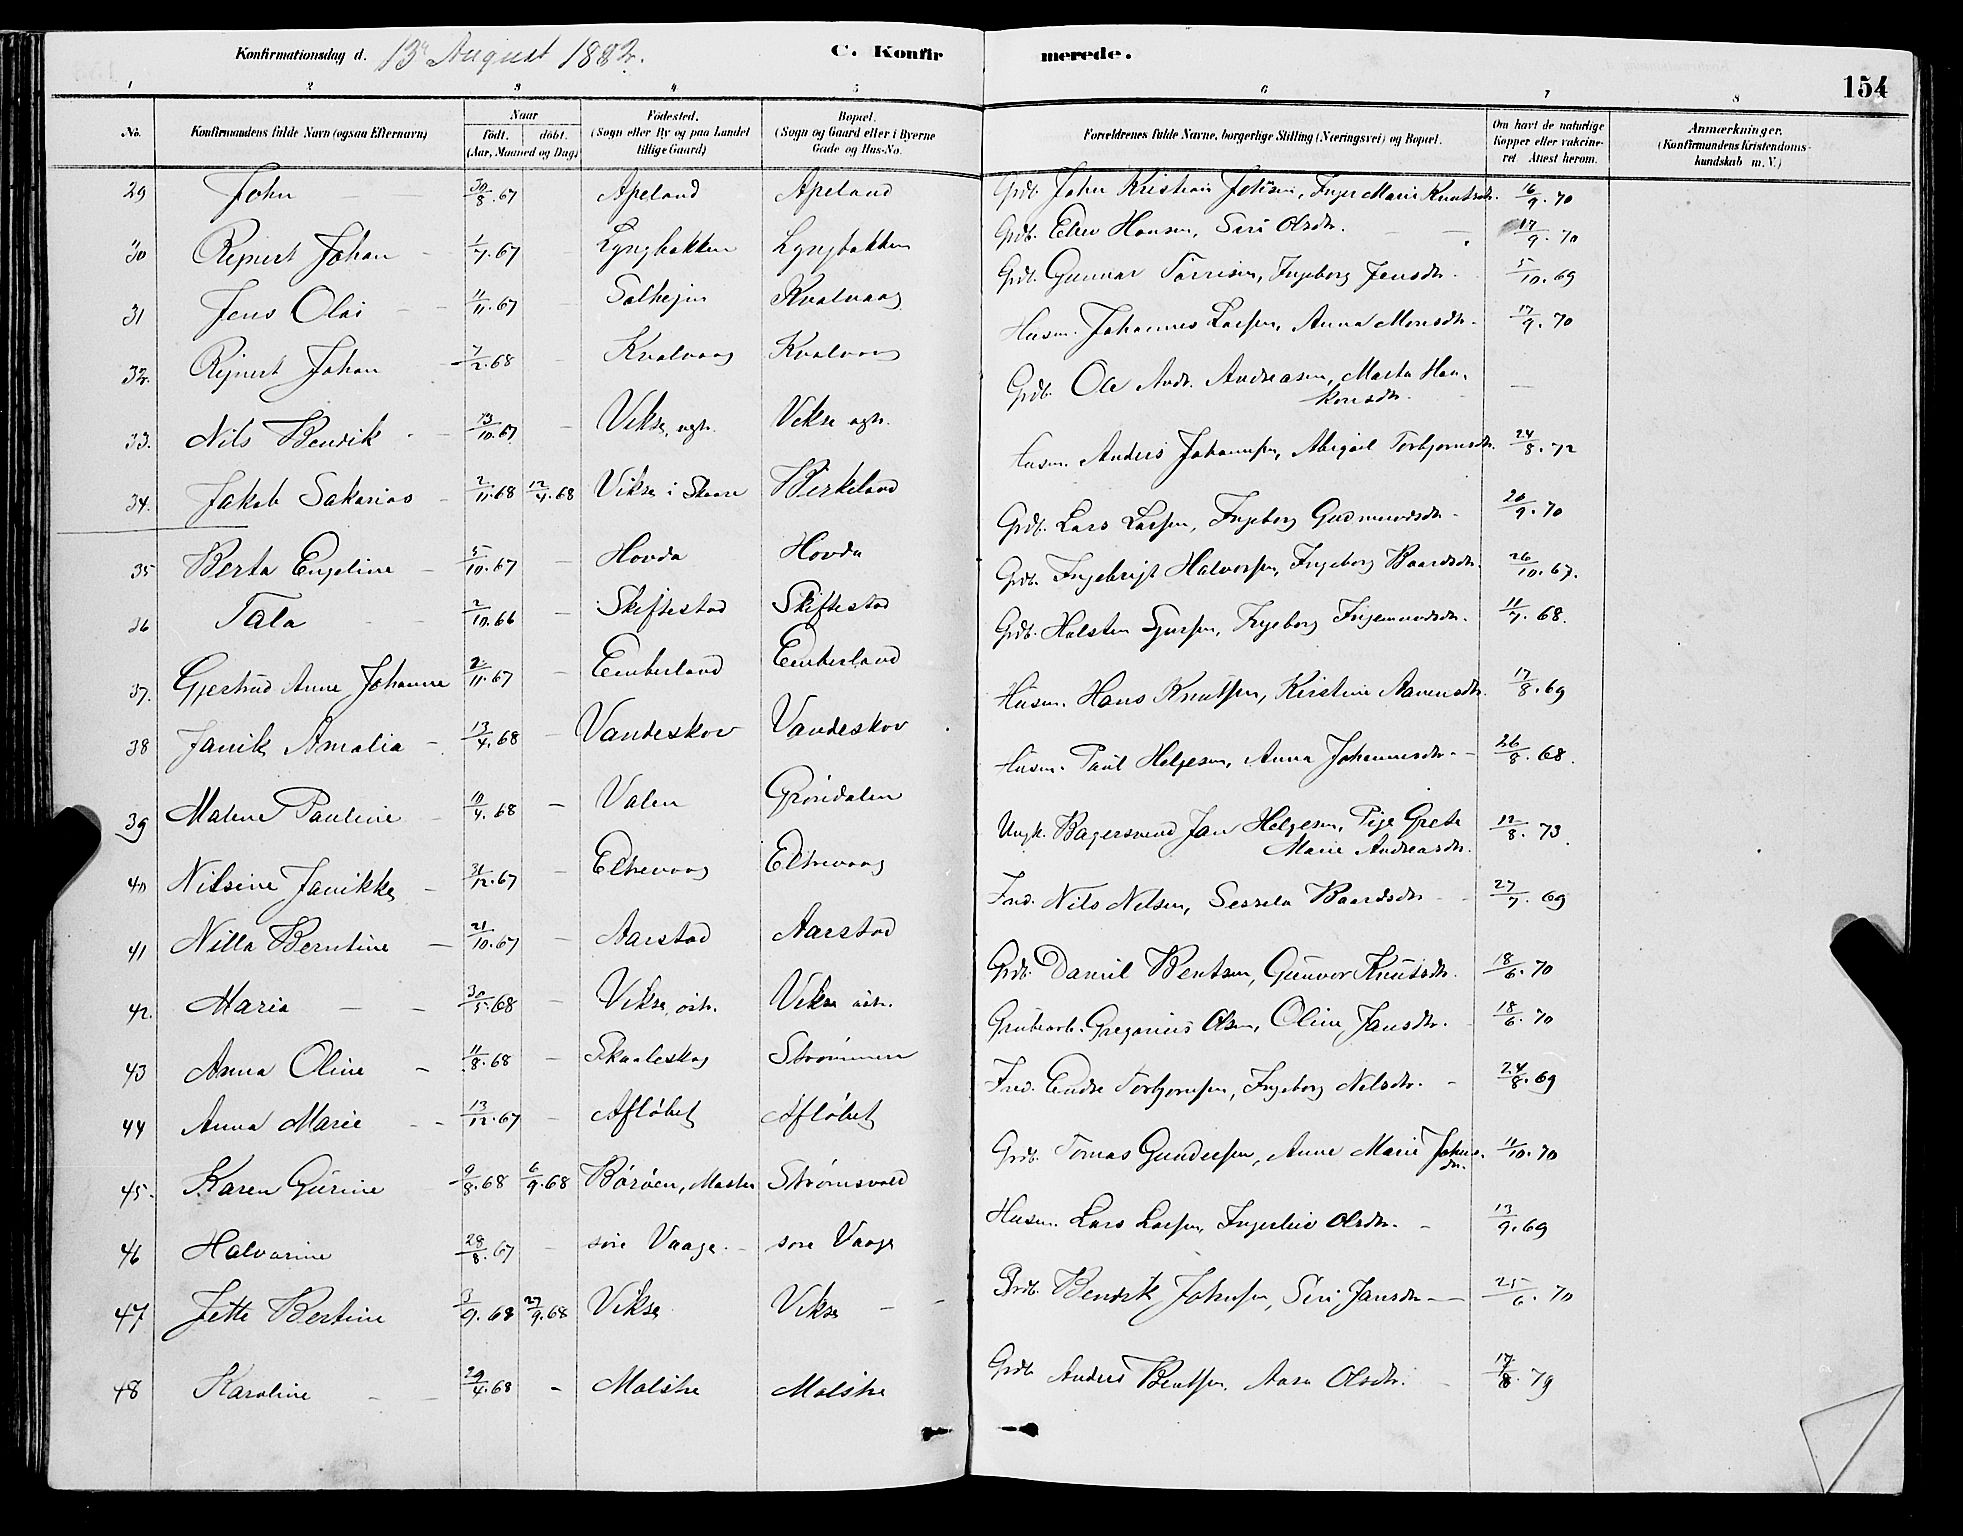 Konfirmationsdag d. 13de August 1882. C. Konfirmerede. 154
1 2 3 4 5 6 7 8
No. Konfirmandens fulde Navn (ogsaa Efternavn) Naar født. døbt. (Aar, Maaned og Dag) Fødested. (Sogn eller By og paa Landet tillige Gaard) Bopæl. (Sogn og Gaard eller i Byerne Gade og Hus-No. Forældrenes fulde Navne, borgerlige Stilling (Næringsvei) og Bopæl. Om havt de naturlige Kopper eller vakcineret. Attest herom. Anmærkninger. (Konfirmandens Kristendomskundskab m. V.)
29 John 30/8.67 Apeland Apeland Grdb. John Kristian Johnsen, Inger Marie Knutsdtr. 16/9.70
30 Rejnert Johan 1/7.67 Lyngbakken Lyngbakken Grdb. Elev Hansen, Siri Olsdtr. 17/9.70
31 Jens Olai 11/11.67 Solhejm Kvalvaag Grdb. Gunnar Torrisen, Ingeborg Jensdtr. 5/10.69
32. Rejnert Johan 7/2.68 Kvalvaag Kvalvaag Husm. Johannes Larsen, Anna Monsdtr. 17/9.70
33. Nils Bendik 13/10.67 Vikse, vestr. Vikse vestr. Grdb. Ole Andr. Andreasen, Marta Haakonsdtr. —
34. Jakob Sakarias 2/11.68 12/4.68 Vikse i Skaare Birkeland Husm. Anders Johannesen, Abigael Torbjørnsdtr. 24/8.72
35 Berta Engeline 5/10.67 Hovda Hovda Grdb. Lars Larsen, Ingeborg Gudmundsdtr. 20/9.70
36 Tala 2/10.66 Skiftestad Skiftestad Grdb. Ingebrigt Halvorsen, Ingeborg Baardsdtr. 26/10.67.
37. Gjertrud Anna Johanne 2/11.67 Emberland Emberland Grdb. Halsten Sjursen, Ingeborg Ingemundsdtr. 11/7.68.
38 Janik Amalia 13/4.68 Vandeskov Vandeskov Husm. Hans Knutsen, Kirstine Aanensdtr. 17/8.69
39 Malene Pauline 10/4.68 Valen Grøndalen Husm. Paul Helgesen, Anna Johannesdtr. 26/8.68.
40 Nilsine Janikke 31/12.67 Eltrevaag Eltrevaag Ungk. Bagersvend Jan Helgesen, Pige Grete Marie Andreasdtr. 12/8.73.
41 Nilla Berntine 21/10.67 Aarstad Aarstad Ind. Nils Nilsen, Sessela Baardsdtr 27/7.69
42. Maria 30/5.68 Vikse, østr. Vikse østr. Grdb. Daniel Bentsen, Gunvor Knutsdtr. 18/6.70
43 Anna Oline 11/8.68 Skaaleskog Strømmen Grubearb. Gregorius Olsen, Oline Jansdtr. 18/6.70
44 Anna Marie 13/12.67 Afløbet Afløbet Ind. Endre Torbjørnsen, Ingeborg Nilsdtr. 24/8.69
45. Karen Gurine 9/8.68 6/9.68 Børøen, Moster Strømsvold Grdb. Tomas Gundersen, Anne Marie Johnsdtr. 11/10.70
46 Halvarine 28/8.67 søre Vaage søre Vaage Husm. Lars Larsen, Ingerlive Olsdtr. 13/9.69
47 Jette Bertine 3/9.68 27/9.68 Vikse Vikse Grdb. Bendik Johnsen, Siri Jansdtr 25/6.70
48 Karoline 29/4.68 Maløthe Maløthe Grdb. Anders Bentsen, Aasa Olsdtr. 17/8.79